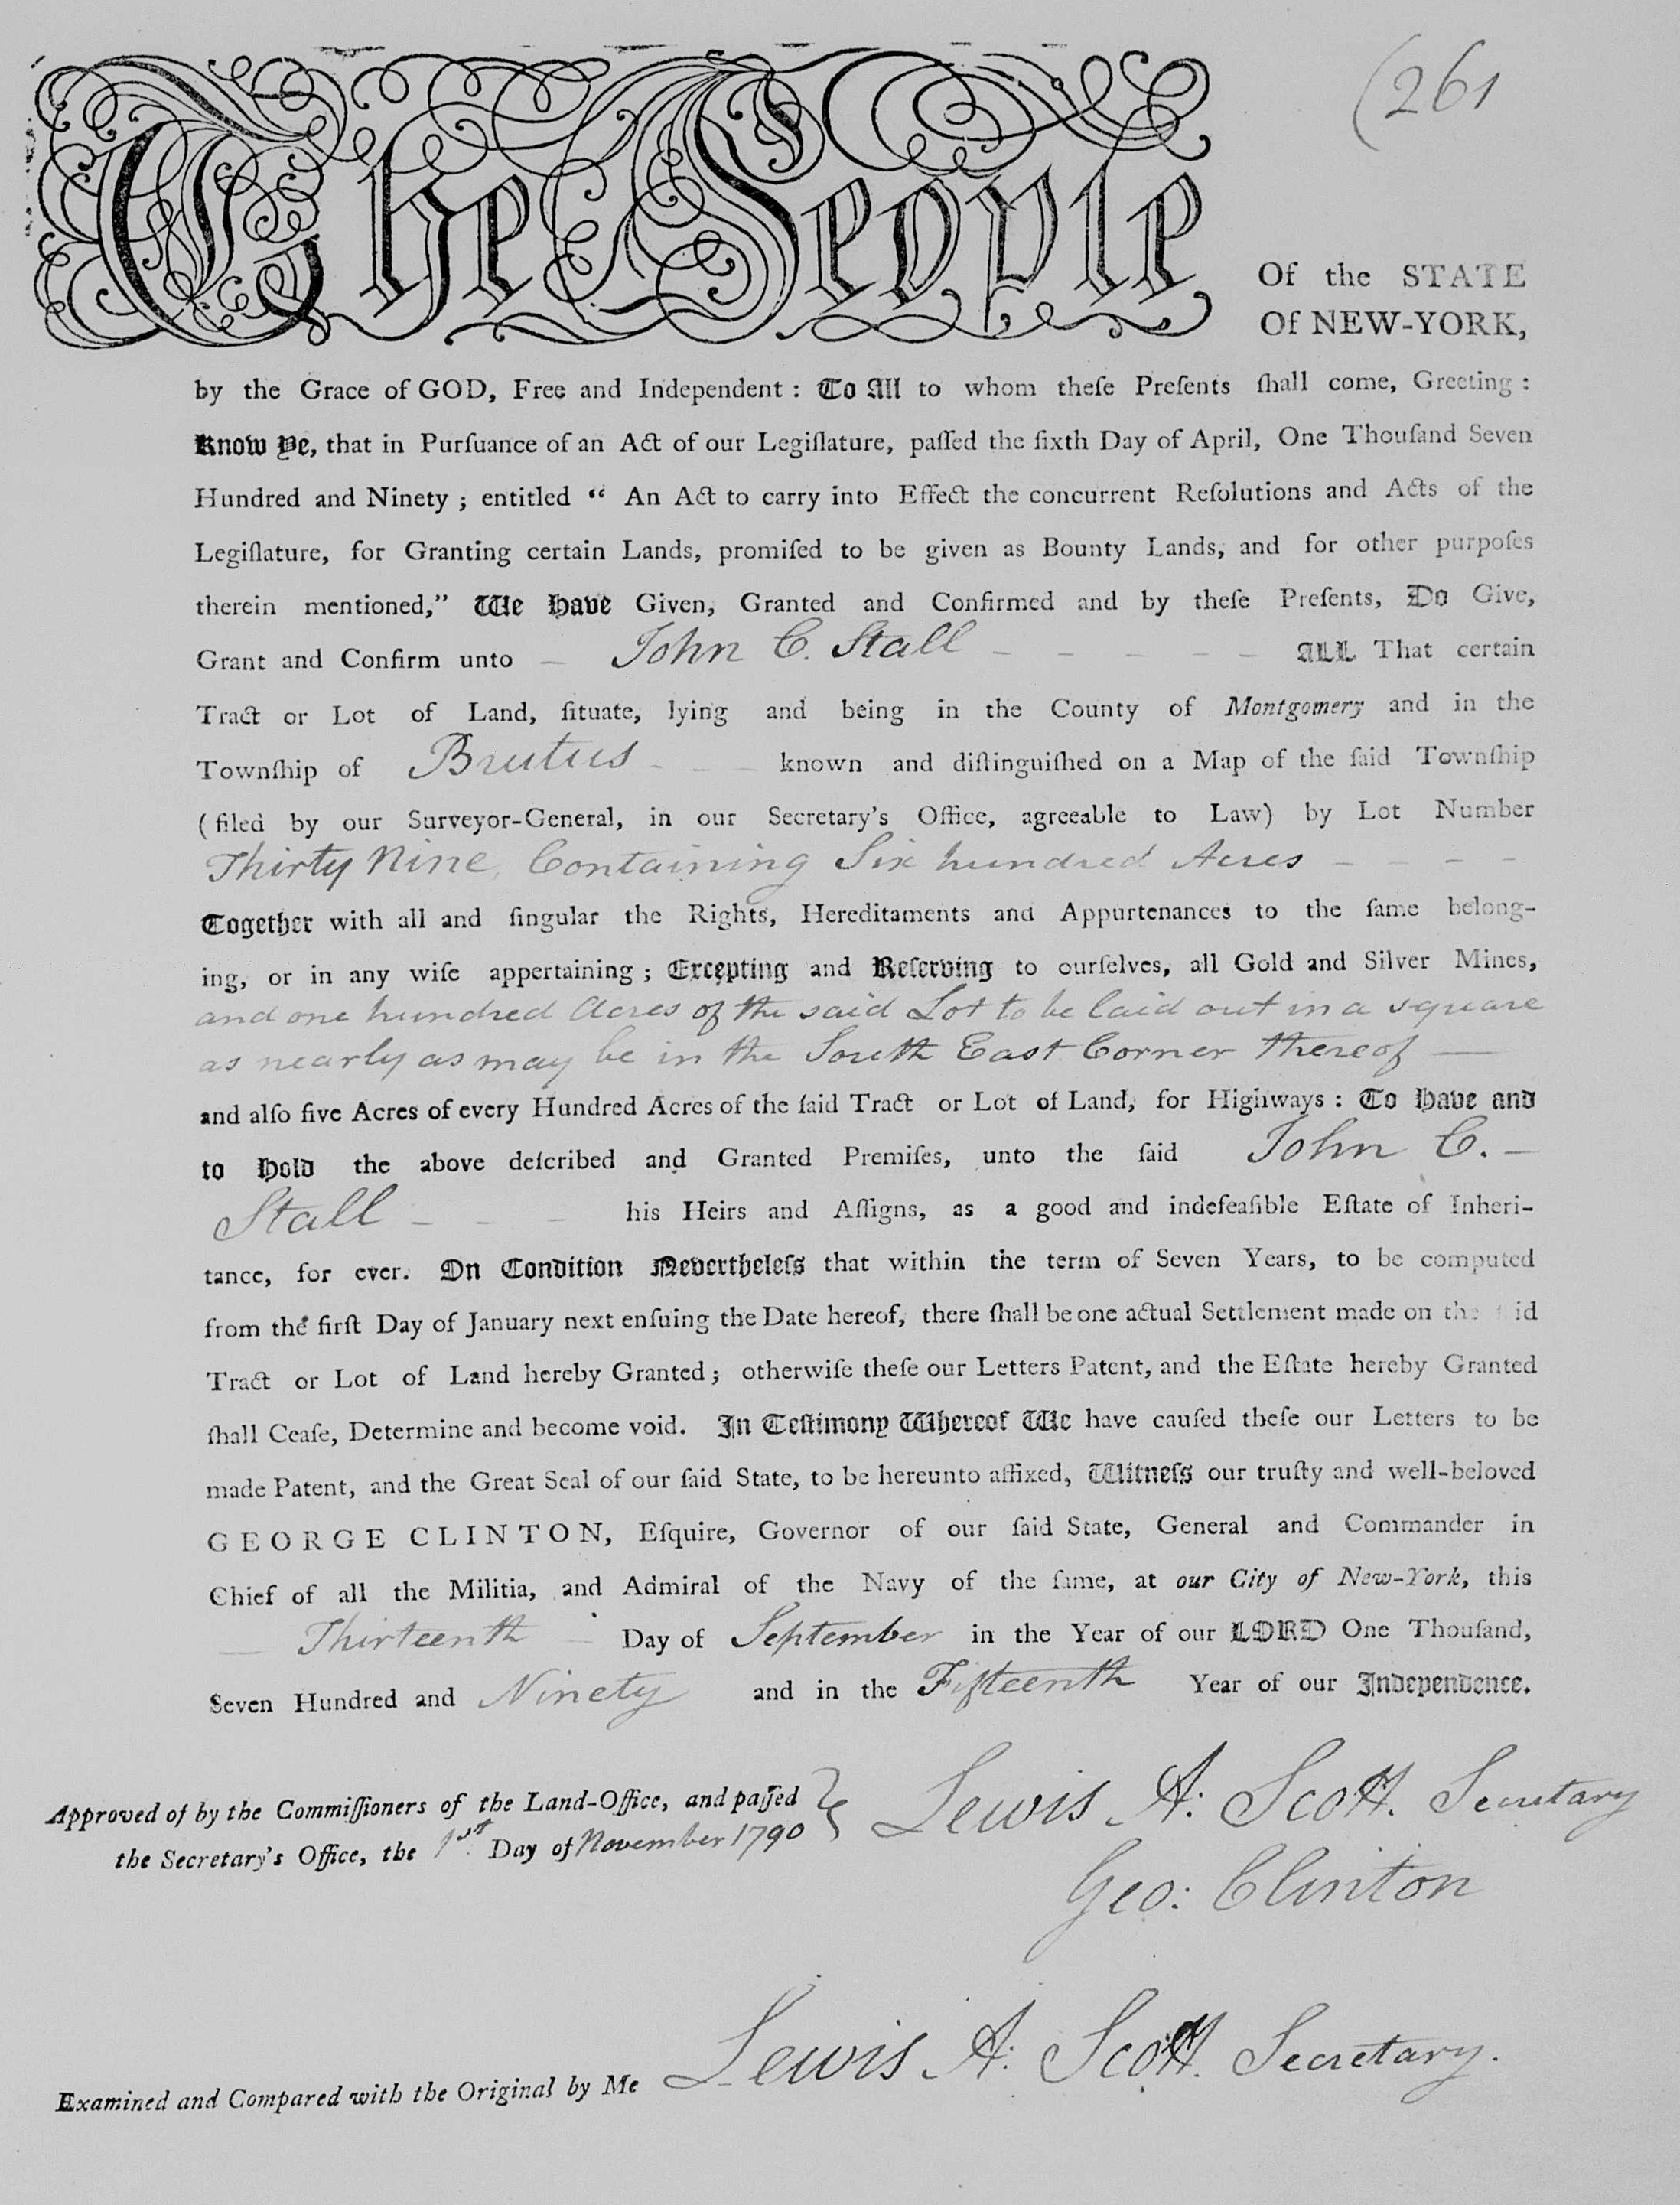 (261
The People
Of the STATE
Of NEW-YORK,
by the Grace of GOD, Free and Independent : To All to whom theſe Preſents ſhall come, Greeting :
Know Ye, that in Purſuance of an Act of our Legiſlature, paſſed the ſixth Day of April, One Thouſand Seven
Hundred and Ninety ; entitled “ An Act to carry into Effect the concurrent Reſolutions and Acts of the
Legiſlature, for Granting certain Lands, promiſed to be given as Bounty Lands, and for other purpoſes
therein mentioned,” We Have Given, Granted and Confirmed and by theſe Preſents, Do Give,
Grant and Confirm unto — John C. Stall - - - - - ALL That certain
Tract or Lot of Land, ſituate, lying and being in the County of Montgomery and in the
Townſhip of Brutus - - - known and diſtinguiſhed on a Map of the ſaid Townſhip
( filed by our Surveyor-General, in our Secretary’s Office, agreeable to Law) by Lot Number
Thirty Nine, Containing Six hundred Acres - - - -
Together with all and ſingular the Rights, Hereditaments and Appurtenances to the ſame belong-
ing, or in any wiſe appertaining ; Excepting and Reſerving to ourſelves, all Gold and Silver Mines,
and one hundred Acres of the said Lot to be laid out in a square
as nearly as may be in the South East Corner thereof —
and alſo five Acres of every Hundred Acres of the ſaid Tract or Lot of Land, for Highways : To Have and
to Hold the above deſcribed and Granted Premiſes, unto the ſaid John C. -
Stall - - - his Heirs and Aſſigns, as a good and indefeaſible Eſtate of Inheri-
tance, for ever. On Condition Nevertheleſs that within the term of Seven Years, to be computed
from the firſt Day of January next enſuing the Date hereof, there ſhall be one actual Settlement made on the ſaid
Tract or Lot of Land hereby Granted ; otherwiſe theſe our Letters Patent, and the Eſtate hereby Granted
ſhall Ceaſe, Determine and become void. In Teſtimony Whereof We have cauſed theſe our Letters to be
made Patent, and the Great Seal of our ſaid State, to be hereunto affixed, Witneſs our truſty and well-beloved
GEORGE CLINTON, Eſquire, Governor of our ſaid State, General and Commander in
Chief of all the Militia, and Admiral of the Navy of the ſame, at our City of New-York, this
— Thirteenth - Day of September in the Year of our LORD One Thouſand,
Seven Hundred and Ninety and in the Fifteenth Year of our Independence.
Approved of by the Commiſſioners of the Land-Office, and paſſed
the Secretary’s Office, the 1st. Day of November 1790 } Lewis A: Scott. Secretary
Geo: Clinton
Examined and Compared with the Original by Me Lewis A: Scott. Secretary.